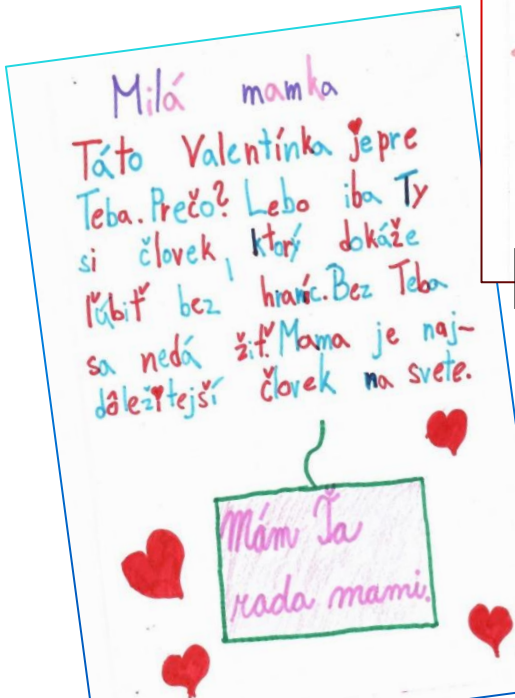 Milá mamka
Táto Valentínka je pre
Teba. Prečo? Lebo iba Ty
si človek, ktorý dokáže
ľúbiť bez hraníc. Bez Teba
sa nedá žiť. Mama je naj-
dôležitejší človek na svete.
Mám Ťa
rada mami.